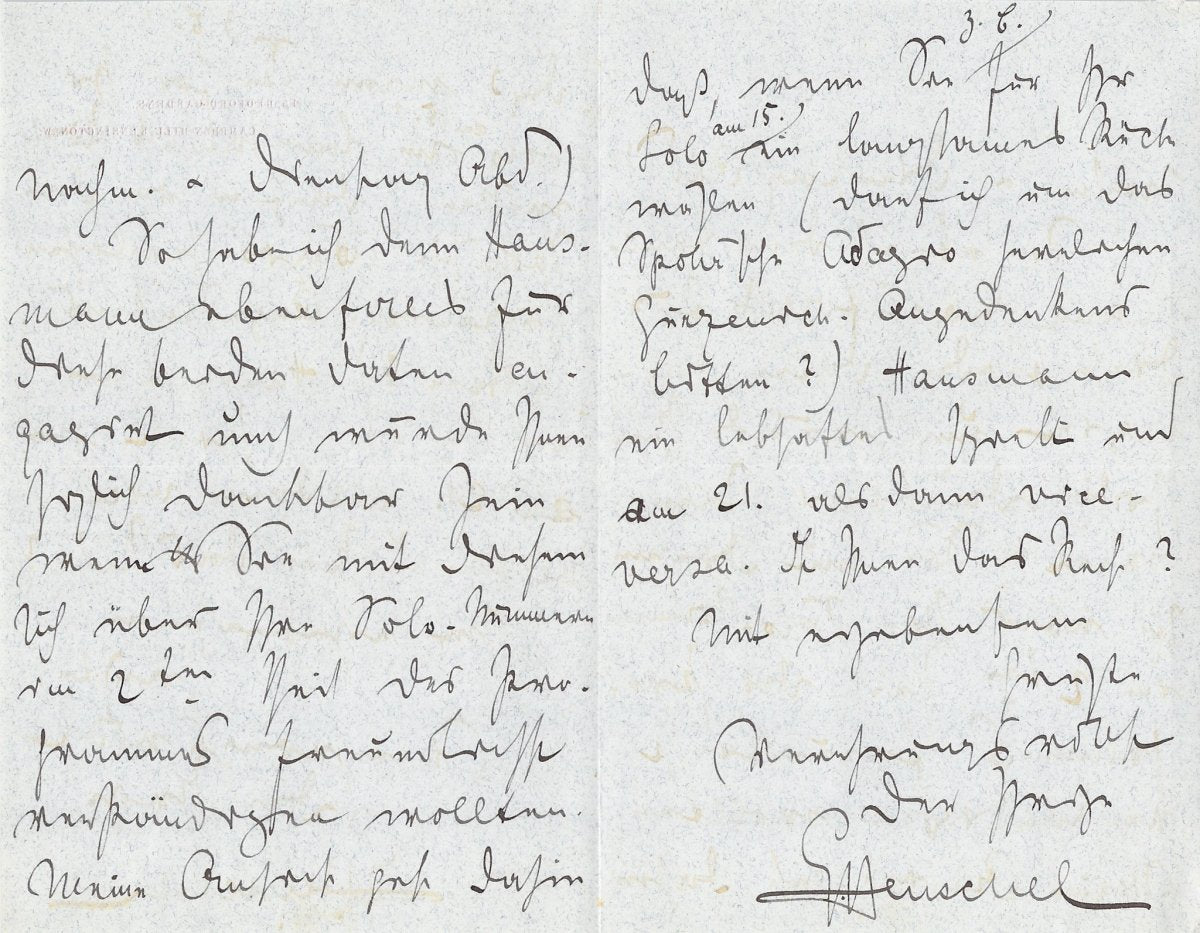 Nachm. & Dienstag Abd.)
So habe ich denn Haus-
mann ebenfalls für
diese beiden Daten en-
gagirt und würde Ihnen
herzlich dankbar sein
wenn Sie mit diesem
sich über Ihre Solo-Nummern
im 2ten Theil des Pro-
grammes freundlichst
verständigen wollten.
Meine Ansicht geht dahin
z. B.
daß, wenn Sie für Ihr
am 15.
Solo ein langsames Stück
wählen (darf ich um das
Spohr'sche Adagio herrlichen
Gürzenich-Angedenkens
bitten?) Hausmann
ein lebhaftes spielt und
am 21. alsdann vice-
versa. Ist Ihnen das Recht?
Mit ergebenstem
Gruße
Verehrungsvollst
der Ihrige
G. Henschel